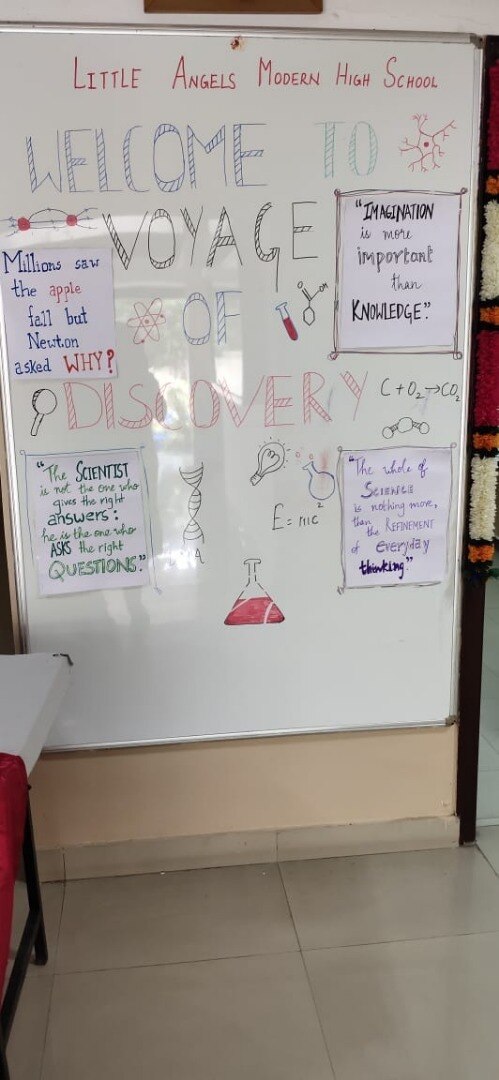 LITTLE ANGELS MODERN HIGH SCHOOL
WELCOME TO
VOYAGE
OF
DISCOVERY
Millions saw
the apple
fall but
Newton
asked WHY?
"IMAGINATION
is more
important
than
KNOWLEDGE."
OH
C + O₂ → CO₂
"The SCIENTIST
is not the one who
gives the right
answers:
he is the one who
ASKS the right
QUESTIONS."
E = mc²
"The whole of
SCIENCE
is nothing more,
than the REFINEMENT
of everyday
thinking."